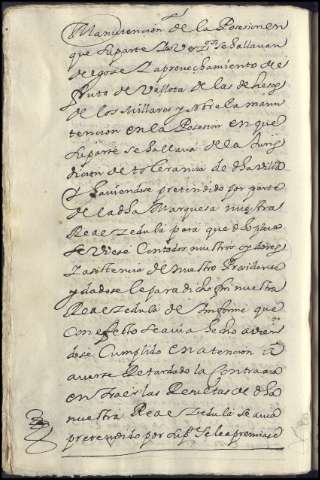 Manutencion de la Posesion en
que su parte y Vezos se hallavan
de gose y aprovechamiento de
fruto de Vellota de las dehesas
de los Millares y sobre la manu
tencion en la Posesion en que
su parte se hallava de la Juris
dicion de tolerancia de dha Villa
y haviendose pretendido por parte
de la dha Marquesa nuestra
Real Zedula para que dho pleito
se Viese Con todos nuestros oydores
y asistencia de nuestro Presidente
y dadose le para dicho fin nuestra
Real Zedula de Informe que
Con efecto se avia hecho avien
dose Cumplido en atencion a
averse Retardado la Contraria
en traer las Resultas de dha
nuestra Real Zedula se avia
pretendido por su pte se le apremiase